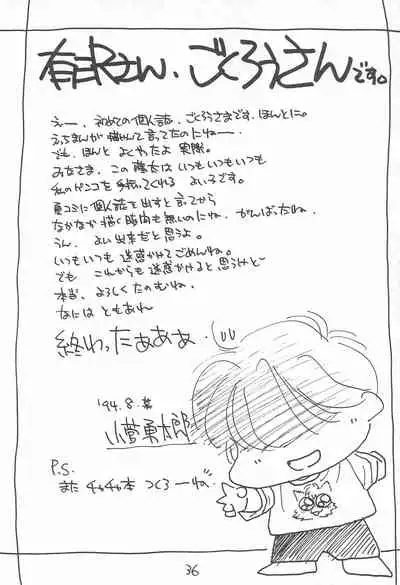 有沢さん、ごくろうさんです。
えー、初めての個人誌、ごくろうさまです。ほんとに。
えっちまんが描けんて言ってたのにねー
でも、ほんと よくやったよ 実際。
みなさま、この
はいつもいつもいつも
私のゲンコを手伝ってくれる よい子です。
夏コミに個人誌を出すと言ってから
なかなか描く時間も無いのにね、がんばったね。
うん、よい出来だと思うよ。
いつもいつも迷惑かけてごめんねっ。
でも これからも迷惑かけると思うけどー
本当、よろしくたのむね。
なにはともあれー
終わったぁああ・
'94.8.
小菅勇太郎
P.S.
また チャチャ本 つくろーね。
36